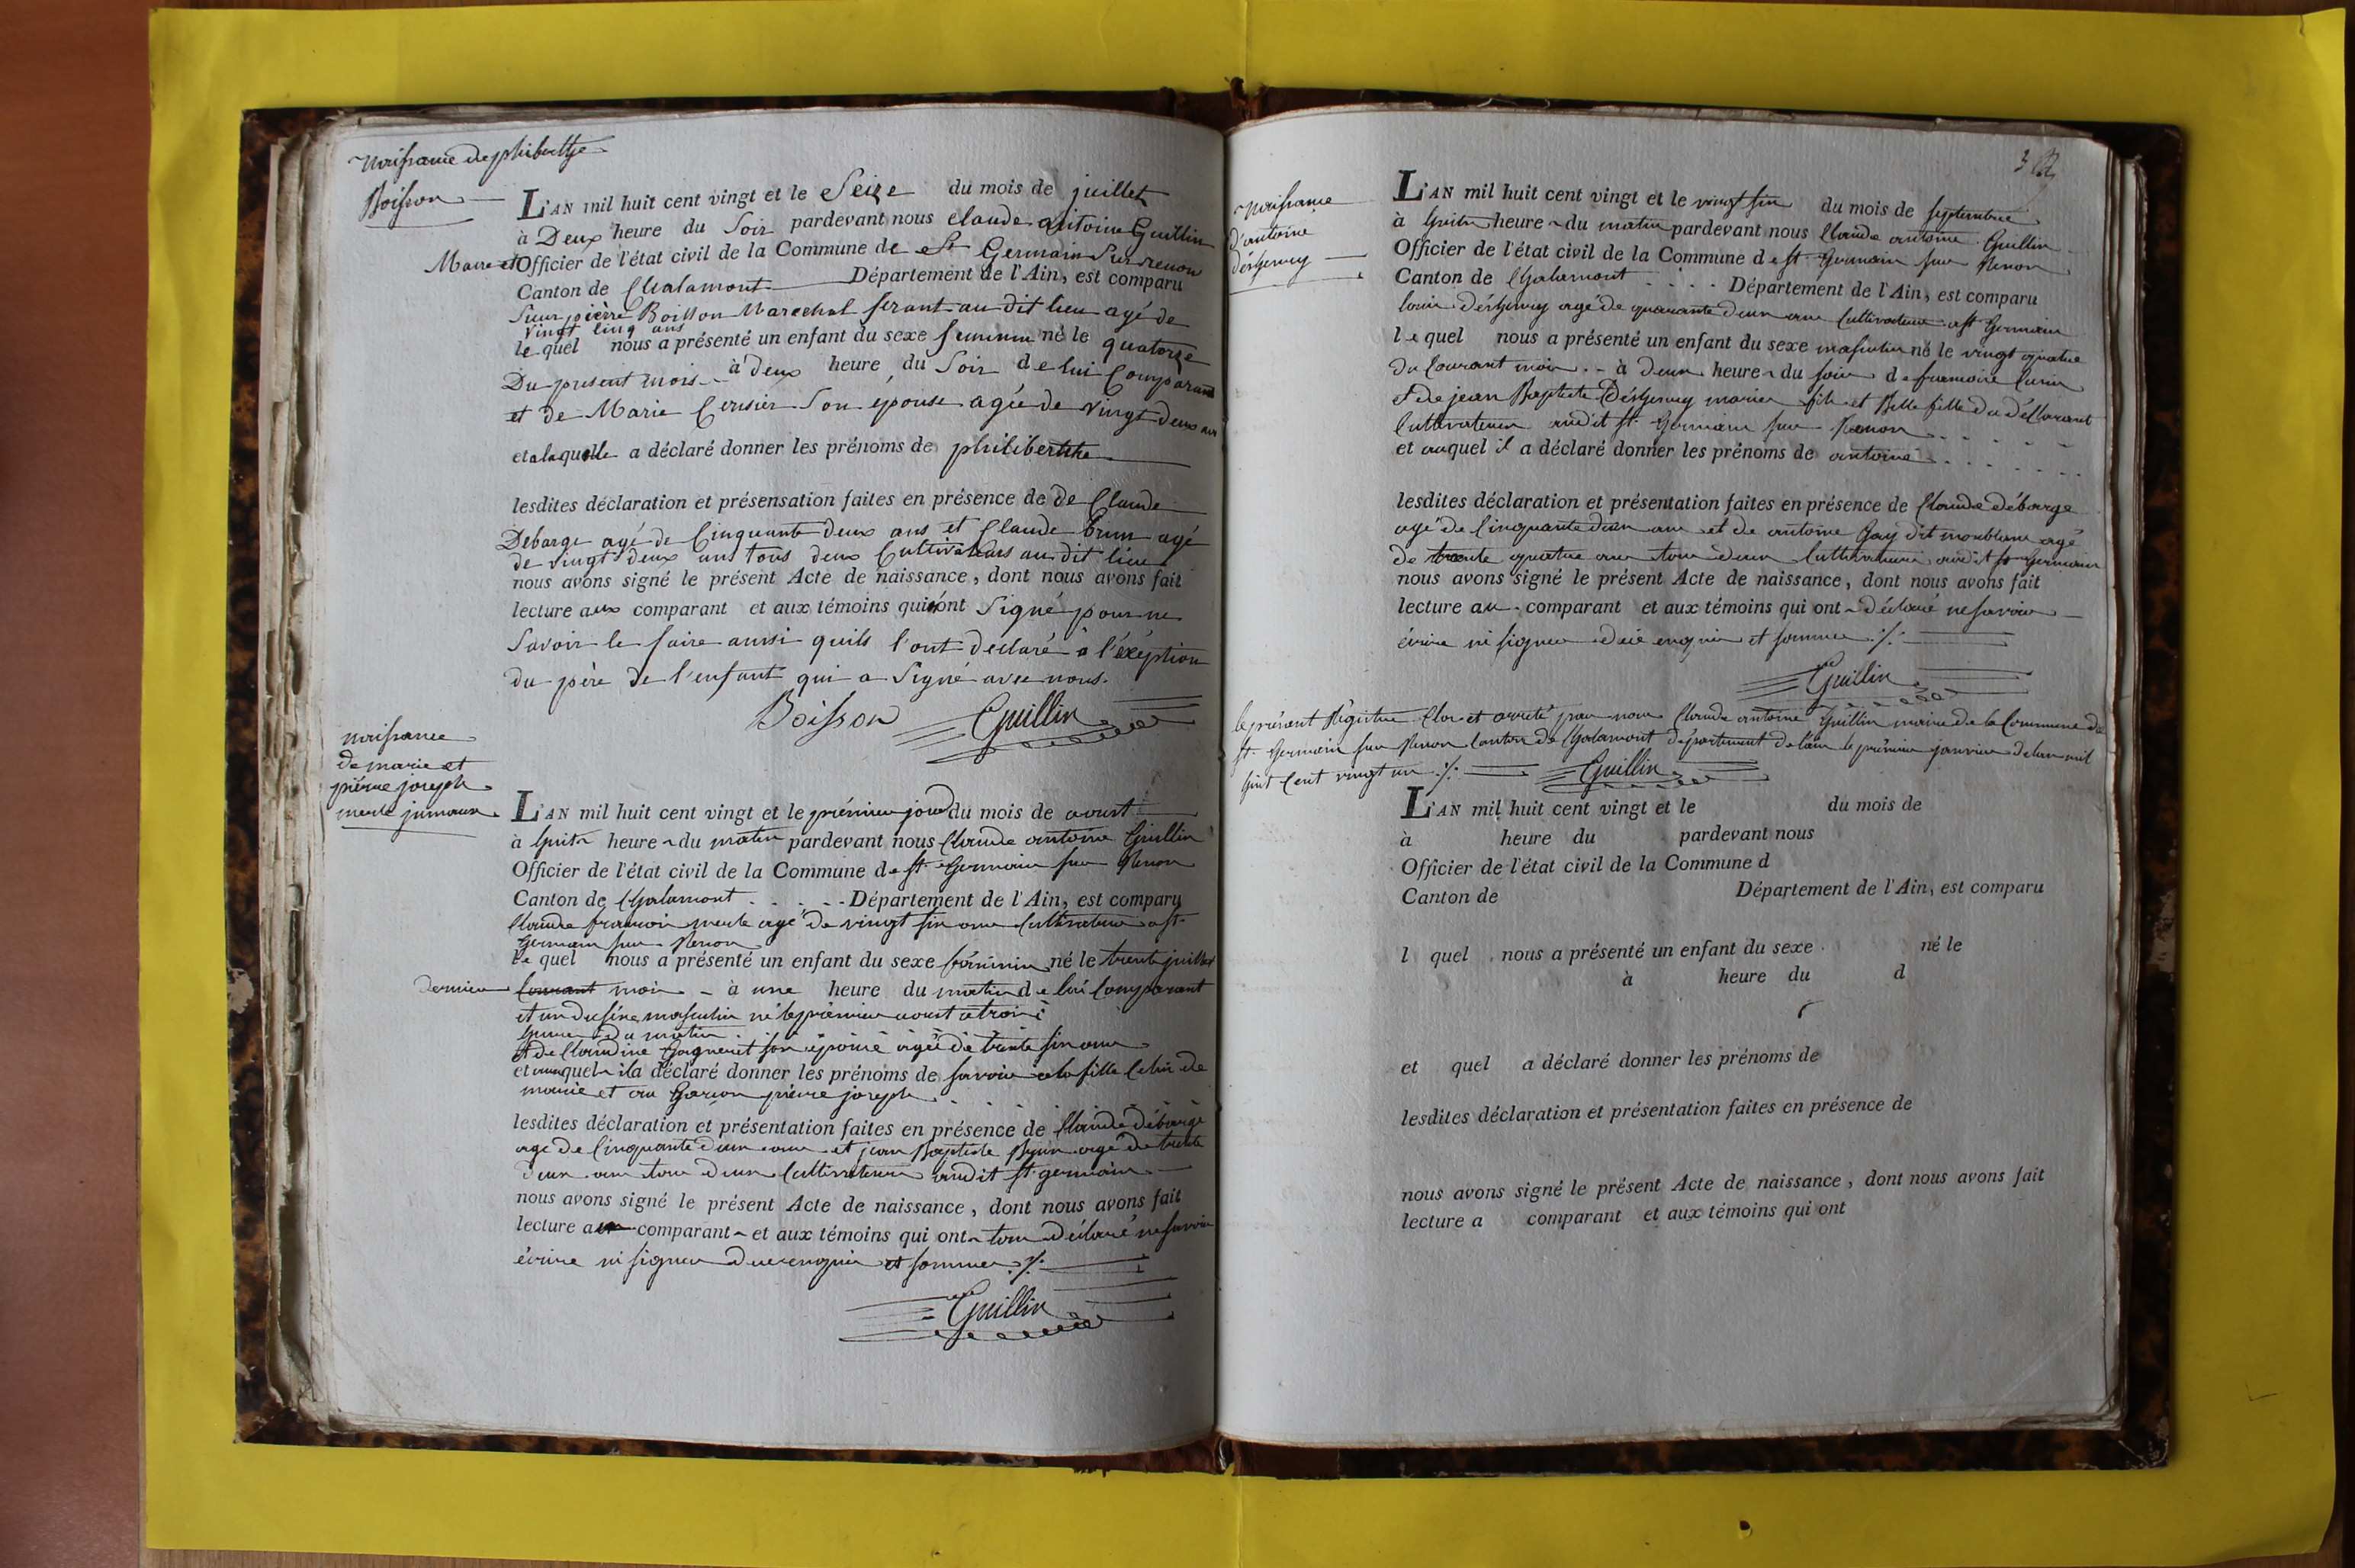 naissance de philibertte
Boisson
L'AN mil huit cent vingt et le Seize du mois de juillet
à Deux heure du Soir pardevant nous Claude antoine Guillin
Maire et Officier de l'état civil de la Commune de St Germain Sur renon
Canton de Chalamont Département de l'Ain, est comparu
Sieur pièrre Boisson Marechal ferant au dit lieu agé de
vingt cinq ans
le quel nous a présenté un enfant du sexe feminin né le quatorze
Du present mois à deux heure du Soir de lui Comparant
et de Marie Cerisier Son épouse agée de vingt deux ans
et a laquelle a déclaré donner les prénoms de philibertte
lesdites déclaration et présensation faites en présence de de Claude
Debarge agé de Cinquante deux ans et Claude brun agé
de vingt deux ans tous deux Cultivateurs au dit lieu
nous avons signé le présent Acte de naissance, dont nous avons fait
lecture aux comparant et aux témoins qui n'ont Signé pour ne
Savoir le faire ainsi quils l'ont declaré à l'éxéption
du père de l'enfant qui a Signé avec nous.
Boisson Guillin
naissance
de marie et
piérre joseph
jumaux
L'AN mil huit cent vingt et le prémier jour du mois de aoust
à huit heure du matin pardevant nous Claude antoine Guillin
Officier de l'état civil de la Commune de st Germain sur Renon
Canton de Chalamont Département de l'Ain, est comparu
Claude françois agé de vingt six ans Cultivateur a st
Germain sur Renon
le quel nous a présenté un enfant du sexe féminin né le trente juillet
dernier Courant mois à une heure du matin de lui Comparant
et un du séxe masculin né le prémier aoust a trois
heures du matin
et de Claudine son épouse agée de trente six ans
et auxquels il a déclaré donner les prénoms de savoir a la fille Celui de
marie et au Garcon piérre joseph
lesdites déclaration et présentation faites en présence de Claude débarge
agé de Cinquante deux ans et jean Baptiste agé de trente
deux ans tous deux Cultivateurs audit st germain
nous avons signé le présent Acte de naissance, dont nous avons fait
lecture au comparant et aux témoins qui ont tous déclaré ne savoir
écrire ni signer de ce enquis et sommes ./.
Guillin
naissance
d'antoine
L'AN mil huit cent vingt et le vingt six du mois de septembre
à huit heure du matin pardevant nous Claude antoine Guillin
Officier de l'état civil de la Commune d st Germain sur Renon
Canton de Chalamont Département de l'Ain, est comparu
louis agé de quarante deux ans Cultivateur a st Germain
le quel nous a présenté un enfant du sexe masculin né le vingt quatre
du Courant mois à deux heure du soir de
et de jean Baptiste mariés fils et Belle fille du déClarant
Cultivateurs audit st Germain sur Renon
et auquel il a déclaré donner les prénoms de antoine
lesdites déclaration et présentation faites en présence de Claude débarge
agé de Cinquante deux ans et de antoine Gay dit agé
de trente quatre ans tous deux Cultivateurs audit st Germain
nous avons signé le présent Acte de naissance, dont nous avons fait
lecture au comparant et aux témoins qui ont déclaré ne savoir
écrire ni signer de ce enquis et sommes ./.
Guillin
le présent Régistre Clos et arrété par nous Claude antoine Guillin maire de la Commune de
st Germain sur Renon Canton de Chalamont département de lain le prémier janvier de lan mil
huit Cent vingt un ./. Guillin
L'AN mil huit cent vingt et le du mois de
à heure du pardevant nous
Officier de l'état civil de la Commune d
Canton de Département de l'Ain, est comparu
l quel nous a présenté un enfant du sexe né le
à heure du d
et quel a déclaré donner les prénoms de
lesdites déclaration et présentation faites en présence de
nous avons signé le présent Acte de naissance, dont nous avons fait
lecture a comparant et aux témoins qui ont